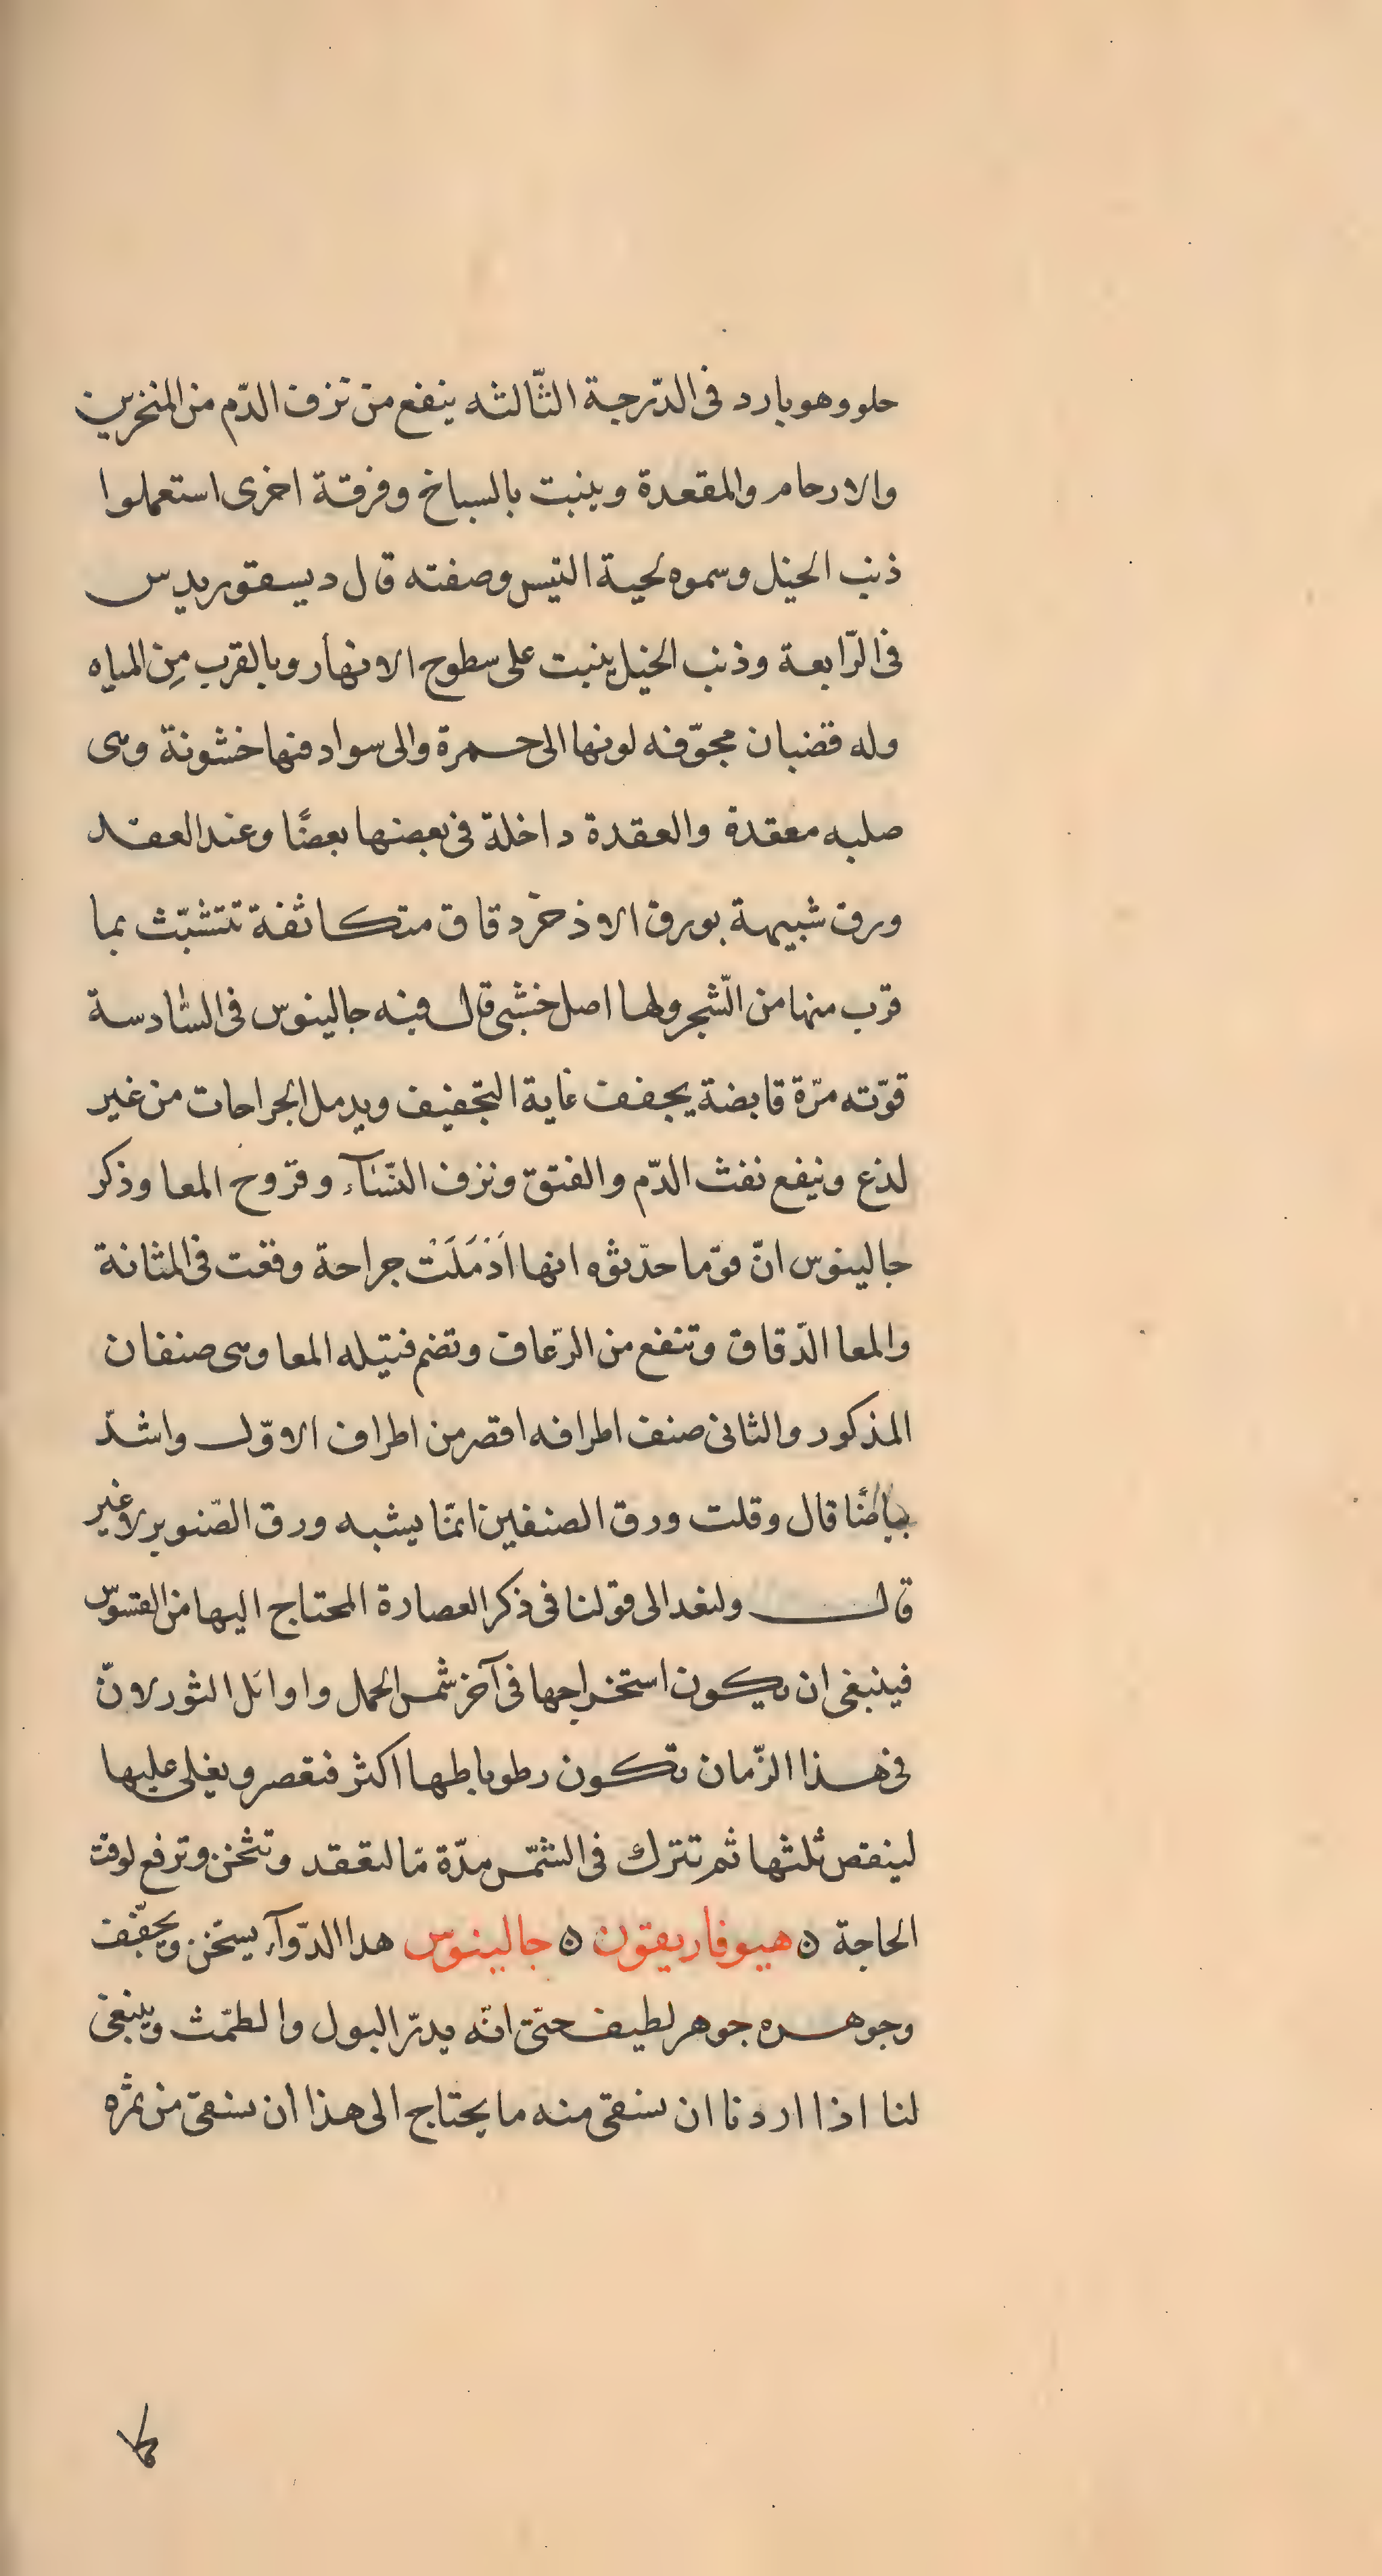 حلو وهو بارد فى الدّرجة الثّالثه ينفع من نزف الدّم من المنخرين
والارحام والمقعدة وينبت بالسباخ وفرقة اخرى استعملوا
ذنب الخيل وسموه لحية التيس وصفته قال ديسقوريدس
فى الرّابعة وذنب الخيل ينبت على سطوح الانهار وبالقرب مِن المياه
وله قضبان مجوّفه لونها الى حمرة والى سواد فيها خشونة وهى
صلبه معقدة والعقدة داخلة فى بعضها بعضًا وعند العقد
ورق شبيهة بورق الاذخر دقاق متكاثفة تتشبّث بما
قرب منها من الشّجر ولها اصل خشبى قال فيه جالينوس فى السّادسة
قوّته مرّة قابضة يجفف غاية التجفيف ويدمل الجراحات من غير
لذع وينفع نفث الدّم والفتق ونزف النّسآء وقروح المعا وذكر
جالينوس انّ قوما حدّثوه انها اَدْمَلَتْ جراحة وقعت فى المثانة
والمعا الدّقاق وتنفع من الرّعاف وتضم فتيله المعا وهى صنفان
المذكور والثانى صنف اطرافه اقصر من اطراف الاوّل واشدّ
بياضًا قال وقلت ورق الصنفين انمّا يشبه ورق الصّنوبر لا غير
قال ولنعد الى قولنا فى ذكر العصارة المحتاج اليها من القسوس
فينبغى ان يكون استخراجها فى آخر شمس الحمل واوائل الثور لانّ
فى هذا الزّمان تكون رطوباطها اكثر فتعصر ويغلى عليها
لينقص ثلثها ثم تترك فى الشمّس مدّة مّا لتعقد وتثخن وترفع لوقت
الحاجة ه هيوفاريقون ه جالينوس هدا الدّوآء يسخن ويجفّف
وجوهره جوهر لطيف حتّى انّه يدرّ البول والطمّث وينبغى
لنا اذا اردنا ان نسقى منه ما يحتاج الى هذا ان نسقى من ثمره